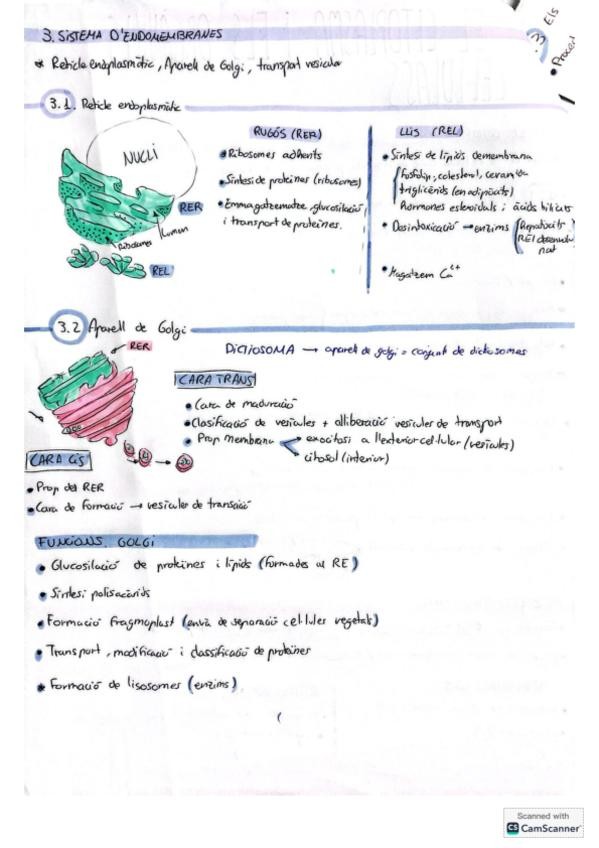 3. SISTEMA D'ENDOMEMBRANES
* Reticle endoplasmàtic, Aparell de Golgi, transport vesicular
Els
Proced
3.1. Reticle endoplasmàtic
NUCLI
RER
Lumen
Ribosomes
REL
RUGÓS (RER)
• Ribosomes adherits
• Síntesi de proteïnes (ribosomes)
• Emmagatzematge, glucosilació
i transport de proteïnes.
LLIS (REL)
• Síntesi de lípids de membrana
fosfolip, colesterol, ceram
triglicèrids (en adipòcits)
Hormones esteroidals i àcids biliars
• Desintoxicació → enzims (Hepatòcits
REL desenvolu
pat
• Magatzem Ca2+
3.2 Aparell de Golgi
RER
DICTIOSOMA → aparell de golgi = conjunt de dictiosomes
CARA TRANS
• Cara de maduració
• Clasificació de vesícules + alliberació vesícules de transport
• Prop membrana < exocitosi a l'exterior cel·lular (vesícules)
citosol (interior)
CARA CIS
• Prop del RER
• Cara de formació → vesícules de transició
FUNCIONS GOLGI
• Glucosilació de proteïnes i lípids (formades al RE)
• Síntesi polisacàrids
• Formació fragmoplast (envà de separació cèl·lules vegetals)
• Transport, modificació i classificació de proteïnes
* Formació de lisosomes (enzims)
Scanned with
CS CamScanner